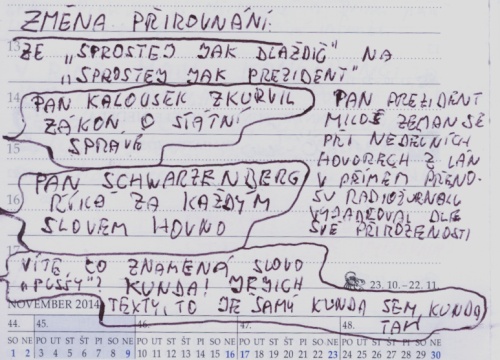 ZMĚNA PŘIROVNÁNÍ:
ZE „SPROSTEJ JAK DLAŽDIČ“ NA
„SPROSTEJ JAK PREZIDENT“
PAN KALOUSEK ZKURVIL
ZÁKON O STÁTNÍ
SPRÁVĚ
PAN SCHWARZENBERG
ŘÍKÁ ZA KAŽDÝM
SLOVEM HOVNO
PAN PREZIDENT
MILOŠ ZEMAN SE
PŘI NEDĚLNÍCH
HOVORECH Z LÁN
V PŘÍMÉM PŘENO-
SU RADIOŽURNÁLU
VYJADŘOVAL DLE
SVÉ PŘIROZENOSTI
VÍTE, CO ZNAMENÁ SLOVO
„PUSSY“? KUNDA! JEJICH
TEXTY, TO JE SAMÝ KUNDA SEM, KUNDA
TAM
13
14
15
16
23. 10. – 22. 11.
NOVEMBER 2014
44. 45. 46. 47. 48.
SO NE PO ÚT ST ČT PÁ SO NE PO ÚT ST ČT PÁ SO NE PO ÚT ST ČT PÁ SO NE PO ÚT ST ČT PÁ SO NE
1 2 3 4 5 6 7 8 9 10 11 12 13 14 15 16 17 18 19 20 21 22 23 24 25 26 27 28 29 30